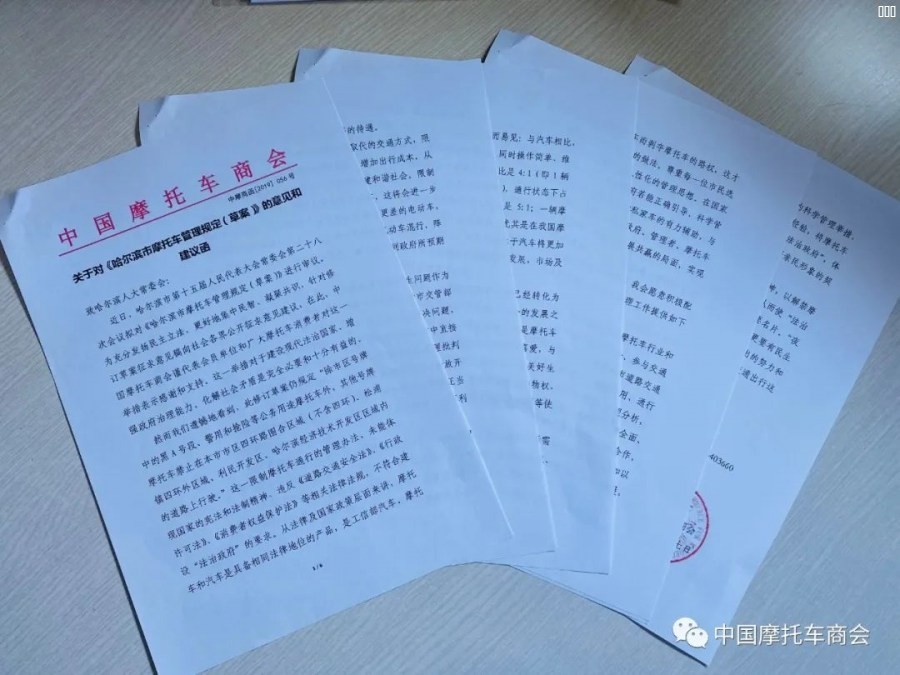 中国摩托车商会
中摩商函[2019] 056 号
关于对《哈尔滨市摩托车管理规定（草案）》的意见和
建议函
致哈尔滨人大常委会：
近日，哈尔滨市第十五届人民代表大会常委会第二十八
次会议拟对《哈尔滨市摩托车管理规定（草案）》进行审议，
为充分发扬民主立法，更好地集中民智、凝聚共识，针对修
订草案征求意见稿向社会各界公开征求意见建议。在此，中
国摩托车商会谨代表会员单位和广大摩托车消费者对这一
举措表示感谢和支持。这一举措对于建设现代法治国家、增
强政府治理能力、化解社会矛盾是完全必要和十分有益的。
然而我们遗憾地看到，此修订草案仍规定“除市区号牌
中的黑A号段、警用和抢险等公务用途摩托车外，其他号牌
摩托车禁止在本市市区四环路围合区域（不含四环）、松浦
镇四环外区域、利民开发区、哈尔滨经济技术开发区区域内
的道路上行驶。”这一限制摩托车通行的管理办法，未能体
现国家的宪法和法制精神，违反《道路交通安全法》、《行政
许可法》、《消费者权益保护法》等相关法律法规，不符合建
设“法治政府”的要求。从法律及国家政策层面来讲，摩托
车和汽车是具备相同法律地位的产品，是工信部汽车、摩托
1/6
的待遇。
取代的交通方式，限
增加出行成本，从
和谐社会。限制
，这将会进一步
更差的电动车、
动车混行、降
到政府所预期
问题作为
市交管部
决问题。
中直接
批判
放开
正当
利
易见：与汽车相比，
同时操作简单、维
比是 4:1（即 1 辆
）、通行状态下占
是 5:1；一辆摩
尤其是在我国摩
于汽车将更加
发展，市场及
已经转化为
的发展之
是摩托车
爱，与
美好生
物权。
等使
需
车而剥夺摩托车的路权，这才
的做法。尊重每一位市民选
性化的管理思想。在国家
有若能正确引导，科学管
私家车的有力辅助，与
政府、管理者、摩托车
展共赢的局面，实现
我会愿意积极配
理工作提供如下
摩托车行业和
、参与交通
道路交通
用，进行
分析，
全面、
合作，
和以
科学管理举措，
经验，将摩托车
法治政府”，体
亲民形象的同
，以解禁摩
而使“法治
名片、“夜
更富有民生
的努力和
通出行这
403660
中国摩托车商会